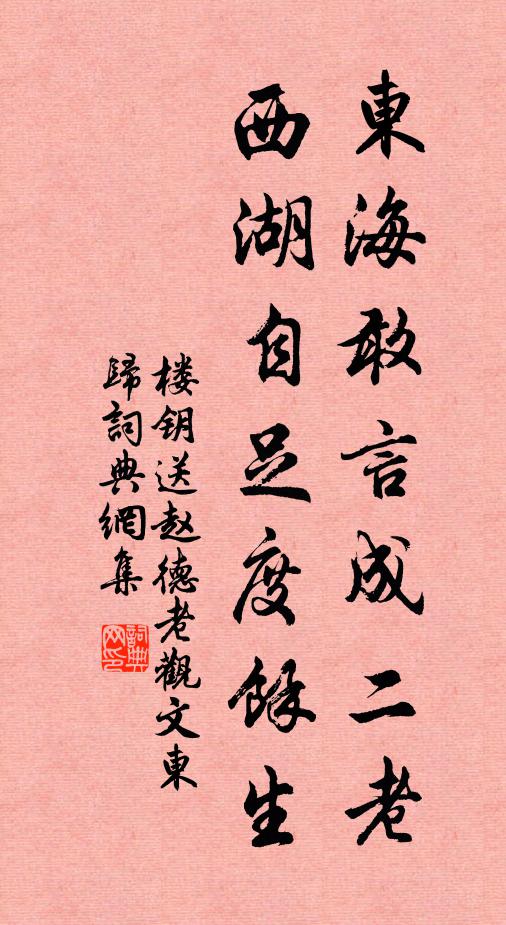 東海敢言成二老
西湖自足度餘生
楼钥送赵德老觀文東
歸詞典網集
詞典
网印